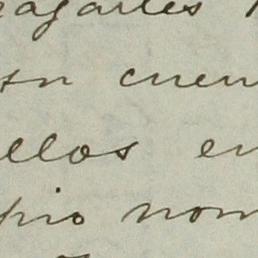 ragarles
en cuen
ellos en
pio nom